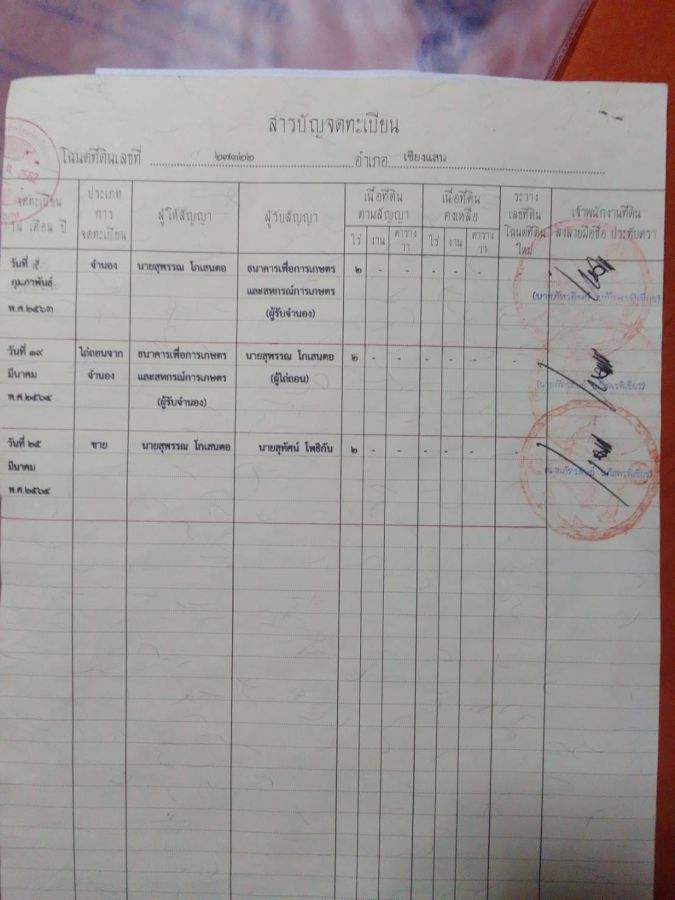 สารบัญจดทะเบียน
โฉนดที่ดินเลขที่ ๒๗๓๒๒ อำเภอ เชียงแสน
จดทะเบียน
วัน เดือน ปี
ประเภท
การ
จดทะเบียน
ผู้ให้สัญญา
ผู้รับสัญญา
เนื้อที่ดิน
ตามสัญญา
ไร่ งาน ตาราง
วา
เนื้อที่ดิน
คงเหลือ
ไร่ งาน ตาราง
วา
ระวาง
เลขที่ดิน
โฉนดที่ดิน
ใหม่
เจ้าพนักงานที่ดิน
ลงลายมือชื่อ ประทับตรา
วันที่ ๕
กุมภาพันธ์
พ.ศ.๒๕๖๓
จำนอง
นายสุพรรณ โกเสนตอ
ธนาคารเพื่อการเกษตร
และสหกรณ์การเกษตร
(ผู้รับจำนอง)
๒ - - - - - -
วันที่ ๑๙
มีนาคม
พ.ศ.๒๕๖๔
ไถ่ถอนจาก
จำนอง
ธนาคารเพื่อการเกษตร
และสหกรณ์การเกษตร
(ผู้รับจำนอง)
นายสุพรรณ โกเสนตอ
(ผู้ไถ่ถอน)
๒ - - - - - -
วันที่ ๒๕
มีนาคม
พ.ศ.๒๕๖๔
ขาย
นายสุพรรณ โกเสนตอ
นายสุทัศน์ โพธิกัน
๒ - - - - - -